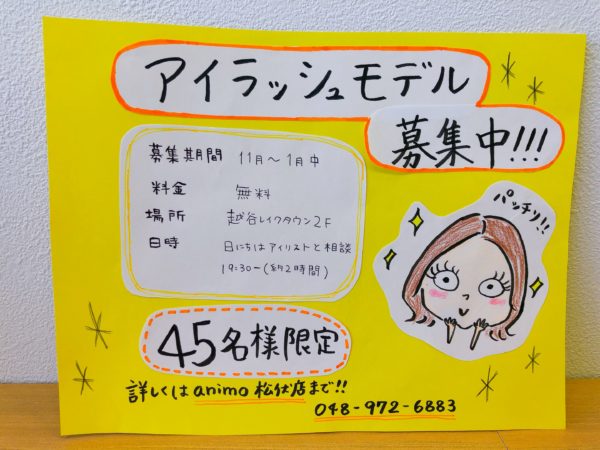 アイラッシュモデル
募集中!!!
募集期間 11月〜1月中
料金 無料
場所 越谷レイクタウン2F
日時 日にちはアイリストと相談
19:30〜(約2時間)
パッチリ!!
45名様限定
詳しくはanimo松伏店まで!!
048-972-6883